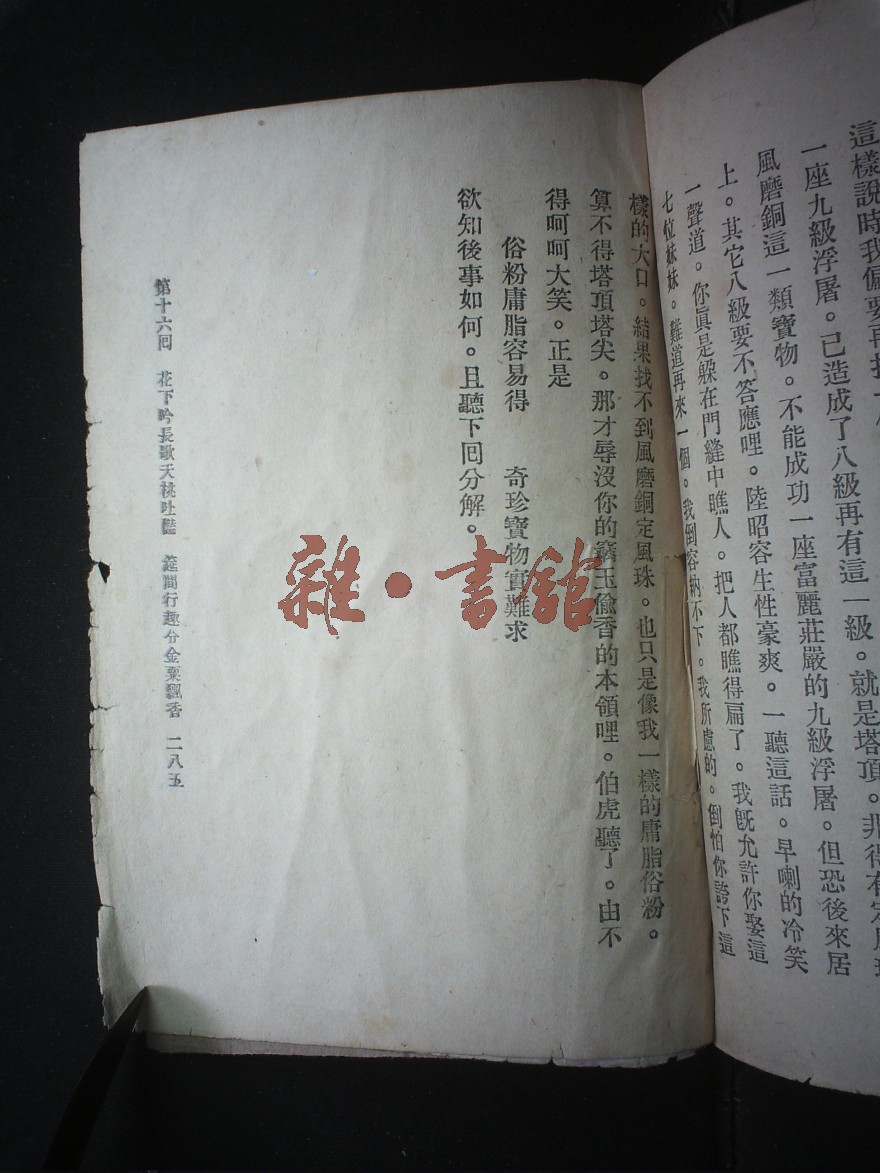 這樣說時我偏要再找一
一座九級浮屠。已造成了八級再有這一級。就是塔頂。非得有定風珠
風磨銅這一類寶物。不能成功一座富麗莊嚴的九級浮屠。但恐後來居
上。其它八級要不答應哩。陸昭容生性豪爽。一聽這話。早喇的冷笑
一聲道。你眞是躲在門縫中瞧人。把人都瞧得扁了。我旣允許你娶這
七位妹妹。難道再來一個。我倒容納不下。我所慮的。倒怕你誇下這
樣的大口。結果找不到風磨銅定風珠。也只是像我一樣的庸脂俗粉。
算不得塔頂塔尖。那才辱沒你的竊玉偸香的本領哩。伯虎聽了。由不
得呵呵大笑。正是
俗粉庸脂容易得 奇珍寶物實難求
欲知後事如何。且聽下回分解。
第十六回 花下吟長歌夭桃吐豔 筵間行趣令金粟飄香 二八五
雜·書館